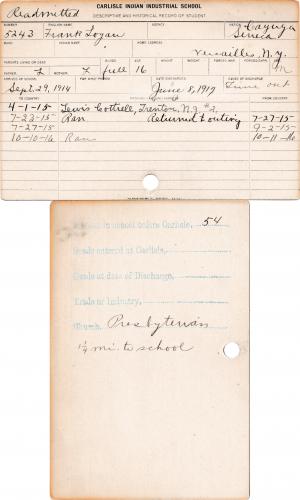 Readmitted
CARLISLE INDIAN INDUSTRIAL SCHOOL
DESCRIPTIVE AND HISTORICAL RECORD OF STUDENT
NUMBER ENGLISH NAME AGENCY NATION
5243 Frank Logan Cayuga Seneca
BAND INDIAN NAME HOME ADDRESS
Versailles, N.Y.
PARENTS LIVING OR DEAD BLOOD AGE HEIGHT WEIGHT FORCED INSP. FORCED EXPR. SEX
Father L Mother L full 16 M
ARRIVED AT SCHOOL FOR WHAT PERIOD DATE DISCHARGED CAUSE OF DISCHARGE
Sept. 29, 1914 June 8, 1917 Time out
TO COUNTRY PATRONS NAME AND ADDRESS FROM COUNTRY
4-1-15 Lewis Cottrell, Trenton, N.J. #2,
7-23-15 Ran Returned to outing 7-27-15
7-27-15 9-2-15
10-10-16 Ran 10-11-16
Months in school before Carlisle, 54
Grade entered at Carlisle,
Grade at date of Discharge,
Trade or Industry,
Church, Presbyterian
1/4 mi. to school